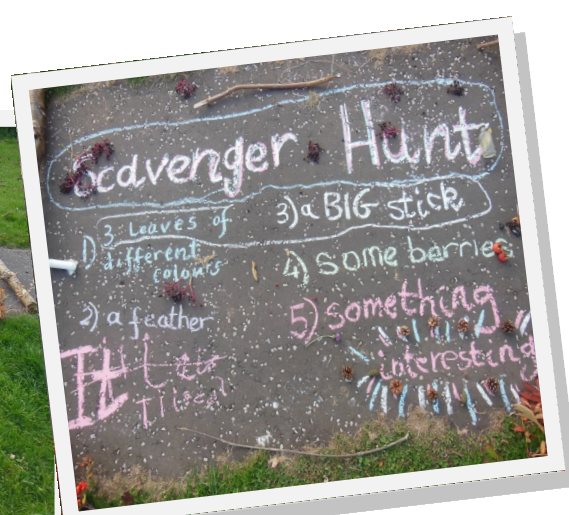 Scavenger Hunt
1) 3 Leaves of
different
colours
2) a feather
3) a BIG stick
4) some berries
5) something
interesting